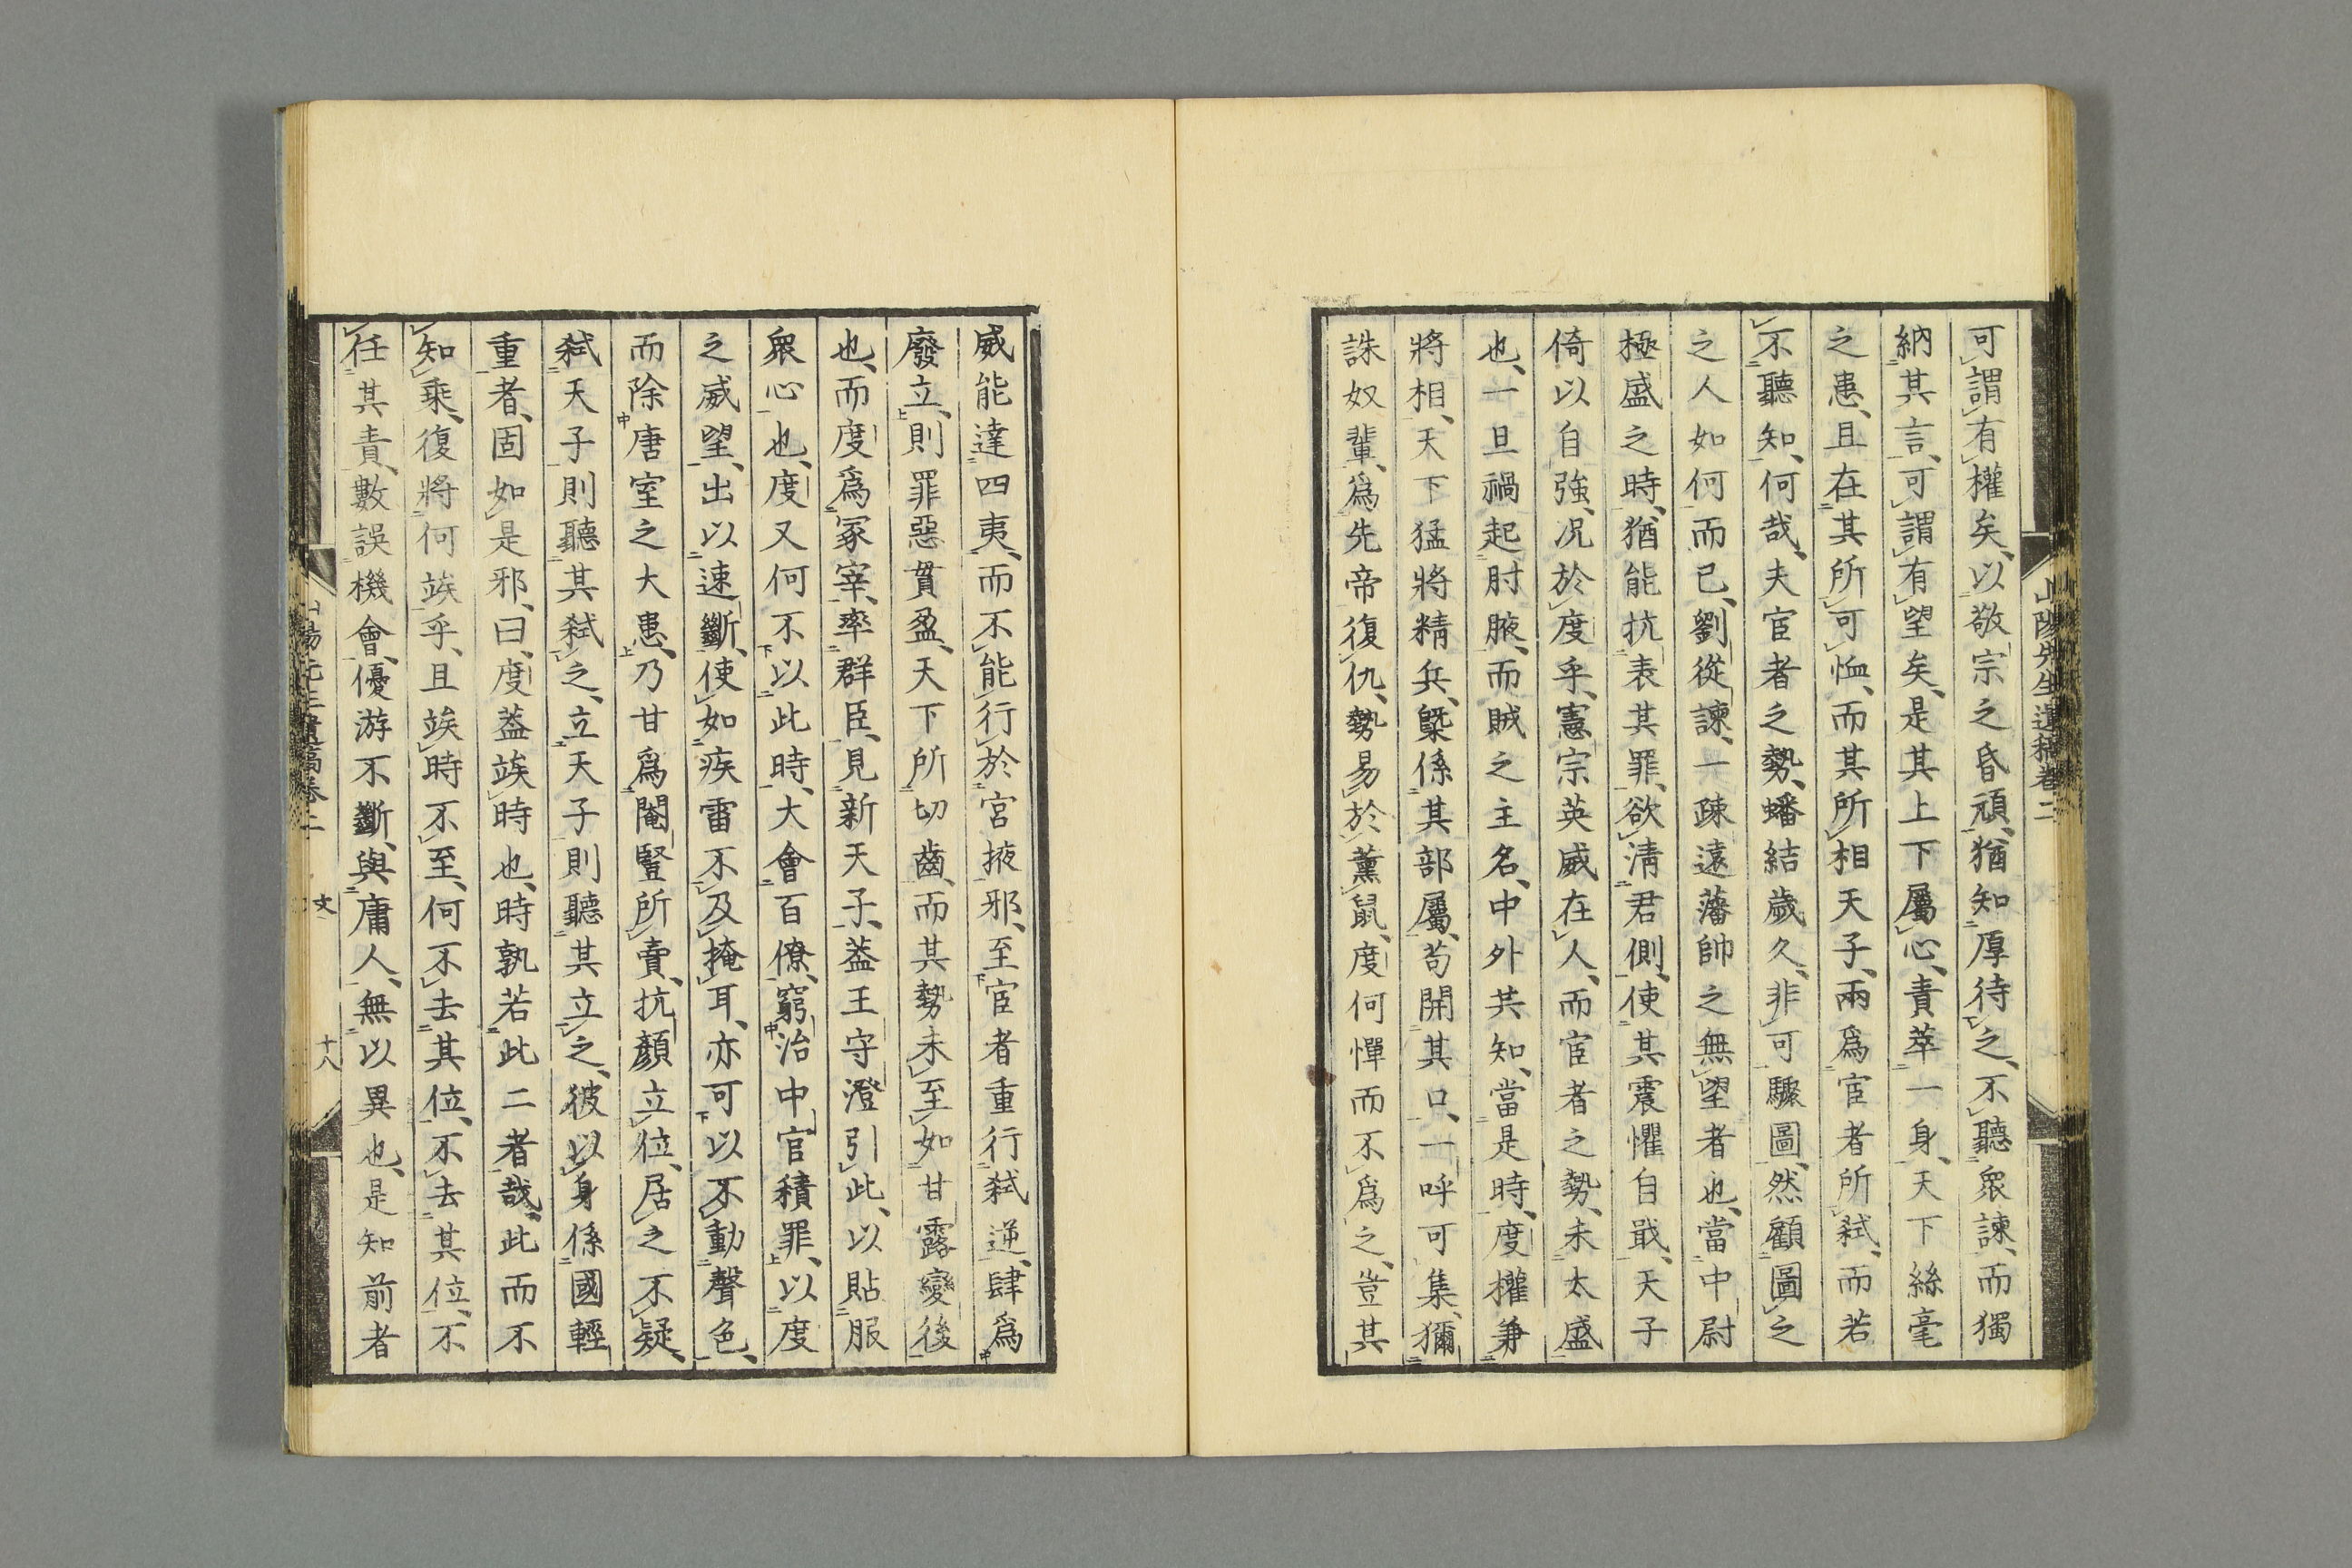 山陽先生遺稿卷二
可謂有權矣、以敬宗之昏頑、猶知厚待之、不聽衆諫、而獨
納其言、可謂有望矣、是其上下屬心、責萃一身、天下絲毫
之患、且在其所可恤、而其所相天子、兩爲宦者所弑、而若
不聽知、何哉、夫宦者之勢、蟠結歲久、非可驟圖、然顧圖之
之人如何而已、劉從諫、一疎遠藩帥之無望者也、當中尉
極盛之時、猶能抗表其罪、欲淸君側、使其震懼自戢、天子
倚以自強、况於度乎、憲宗英威在人、而宦者之勢、未太盛
也、一旦禍起肘腋、而賊之主名、中外共知、當是時、度權兼
將相、天下猛將精兵、槩係其部屬、苟開其口、一呼可集、獮
誅奴輩、爲先帝復仇、勢易於薰鼠、度何憚而不爲之、豈其
威能達四夷、而不能行於宮掖邪、至宦者重行弑逆、肆爲
廢立、則罪惡貫盈、天下所切齒、而其勢未至如甘露變後
也、而度爲冢宰、率群臣、見新天子、蓋王守澄引此、以貼服
衆心也、度又何不以此時、大會百僚、窮治中官積罪、以度
之威望、出以速斷、使如疾雷不及掩耳、亦可以不動聲色、
而除唐室之大患、乃甘爲閹豎所賣、抗顏立位、居之不疑、
弑天子則聽其弑之、立天子則聽其立之、彼以身係國輕
重者、固如是邪、曰、度蓋竢時也、時孰若此二者哉、此而不
知乘、復將何竢乎、且竢時不至、何不去其位、不去其位、不
任其責、數誤機會、優游不斷、與庸人、無以異也、是知前者
山陽先生遺稿卷二　文　十八